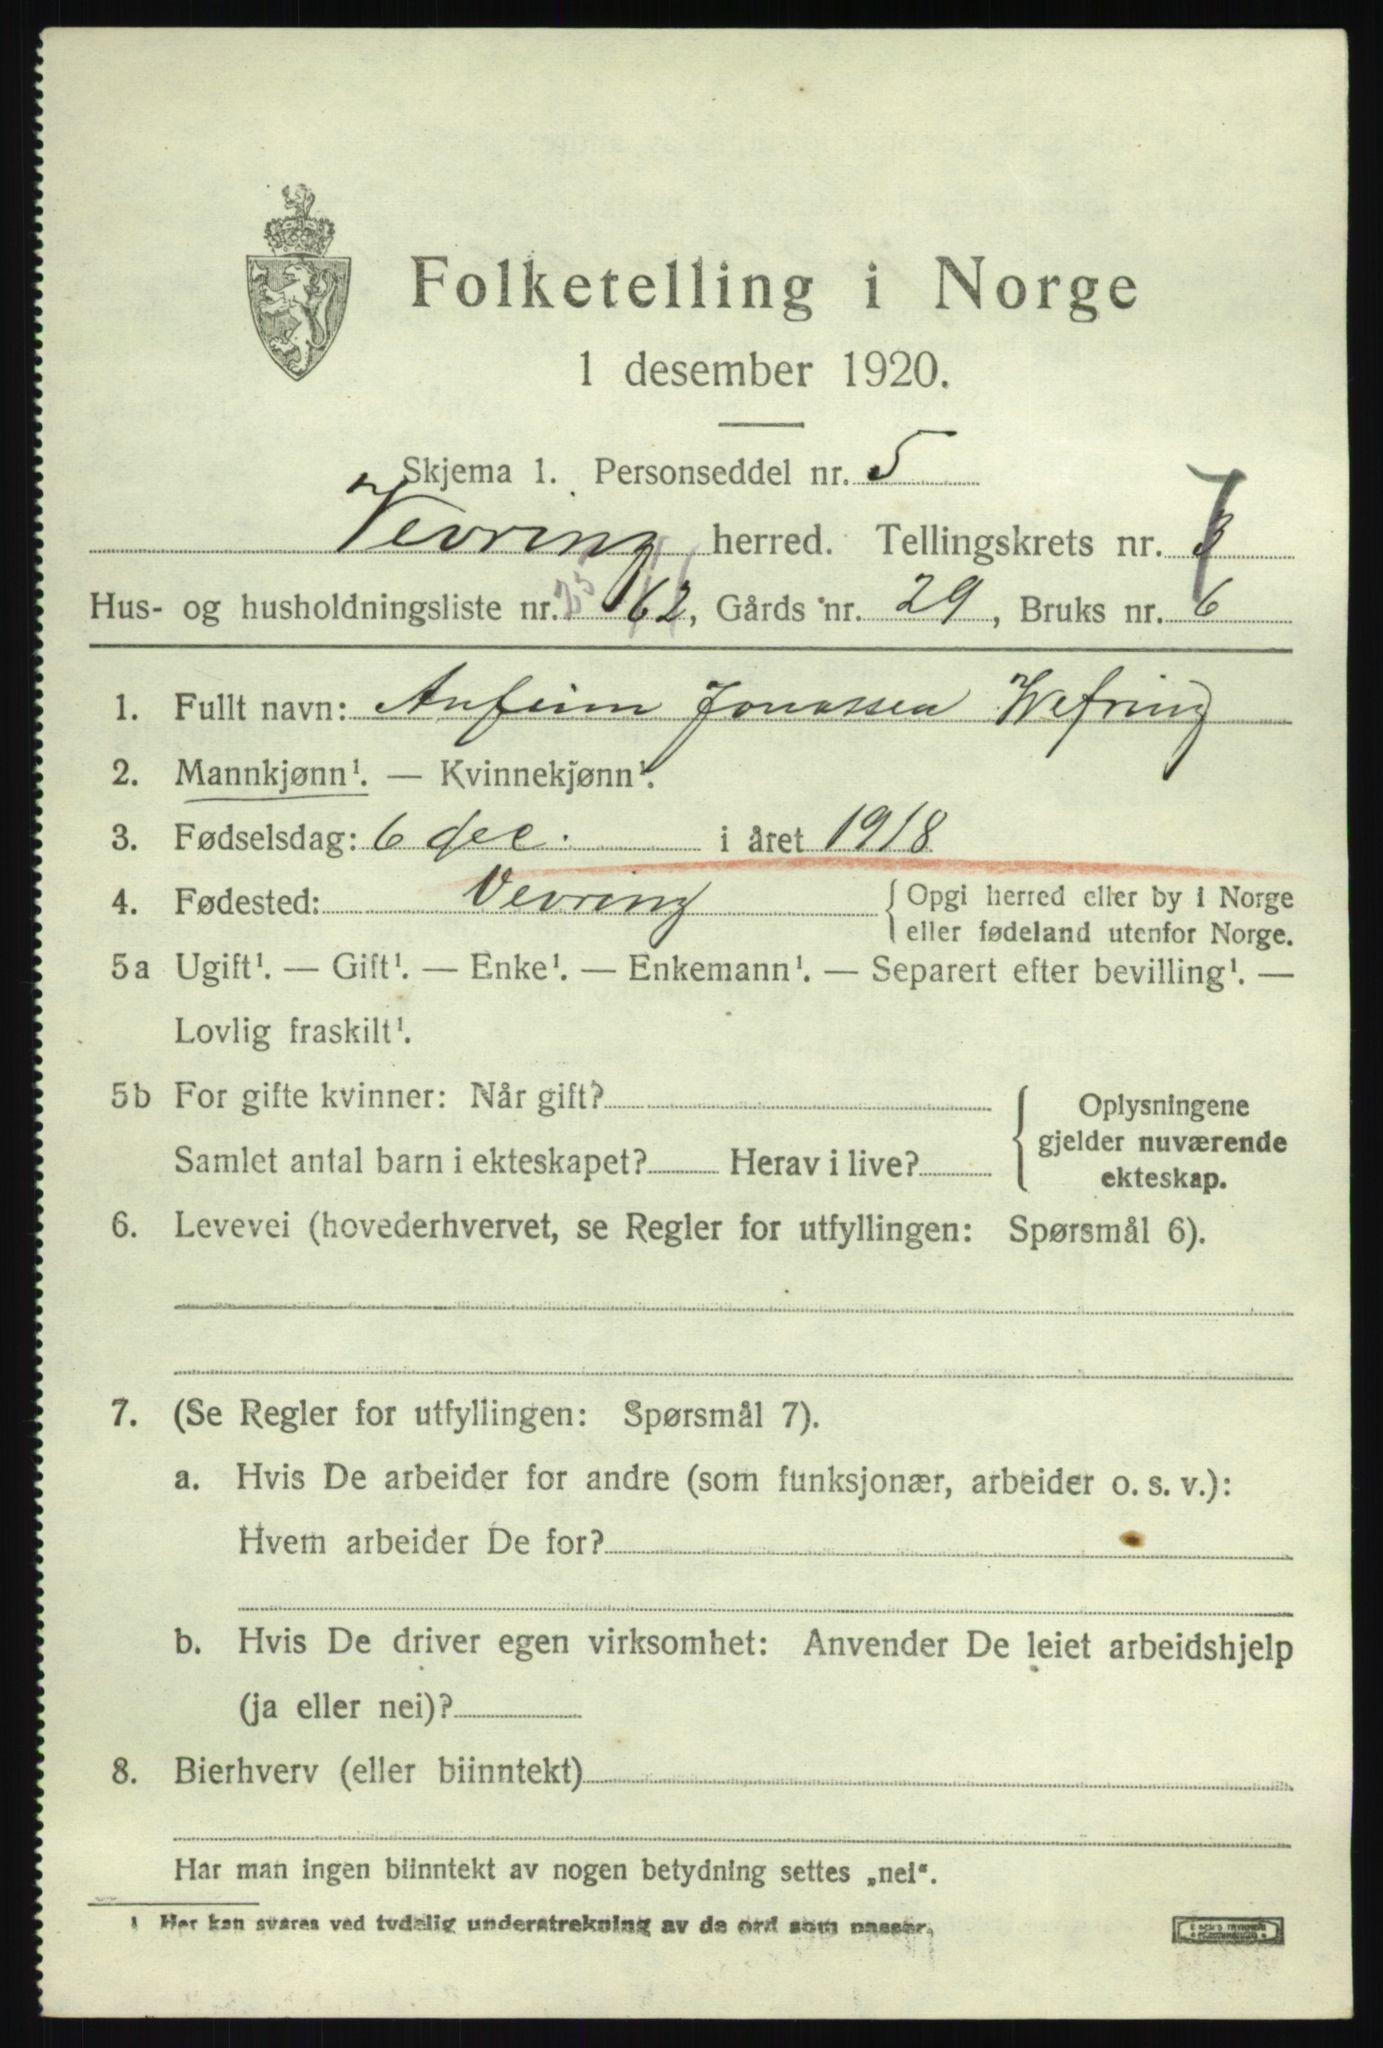 Folketelling i Norge
1 desember 1920.
Skjema 1. Personseddel nr. 5
Vevring herred. Tellingskrets nr. 3 7
Hus- og husholdningsliste nr. 62, Gårds nr. 29, Bruks nr. 6
1. Fullt navn: Anfinn Jonassen Wefring
2. Mannkjønn¹. — Kvinnekjønn¹.
3. Fødselsdag: 6 dec. i året 1918
4. Fødested: Vevring { Opgi herred eller by i Norge
eller fødeland utenfor Norge.
5a Ugift¹. — Gift¹. — Enke¹. — Enkemann¹. — Separert efter bevilling¹. —
Lovlig fraskilt¹.
5b For gifte kvinner: Når gift? { Oplysningene
gjelder nuværende
Samlet antal barn i ekteskapet? Herav i live? ekteskap.
6. Levevei (hovederhvervet, se Regler for utfyllingen: Spørsmål 6).
7. (Se Regler for utfyllingen: Spørsmål 7).
a. Hvis De arbeider for andre (som funksjonær, arbeider o. s. v.):
Hvem arbeider De for?
b. Hvis De driver egen virksomhet: Anvender De leiet arbeidshjelp
(ja eller nei)?
8. Bierhverv (eller biinntekt)
Har man ingen biinntekt av nogen betydning settes „nei“.
1 Her kan svares ved tydelig understrekning av de ord som passer.